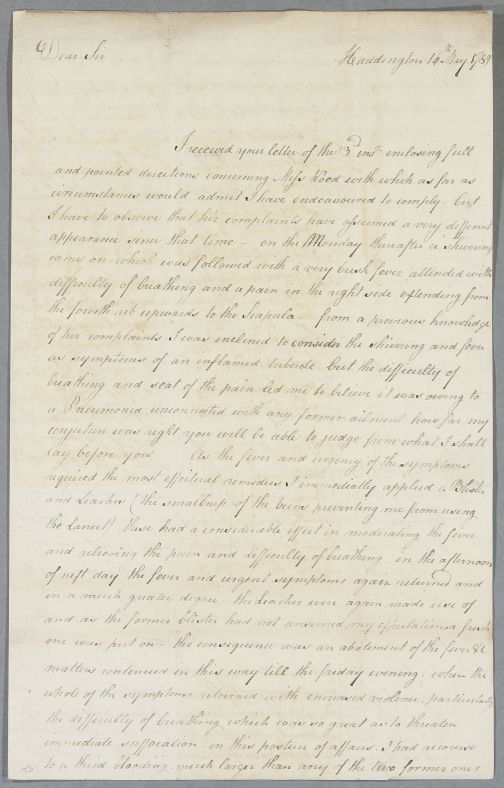 Dear Sir
Haddington 14th May 1789
I received your letter of the 3d inst. inclosing full
and pointed directions concerning Miss Wood with which as far as
circumstances would admit I have endeavoured to comply. but
I have to observe that her complaints have assumed a very different
appearance since that time - on the Monday thereafter a shivering
came on which was followed with a very brisk fever attended with
difficulty of breathing and a pain in the right side extending from
the fourth rib upwards to the Scapula - from a previous knowledge
of her complaints I was inclined to consider the shivering and fever
as symptoms of an inflamed tubercle. but the difficulty of
breathing and seat of the pain led me to believe it was owing to
a Pneumonia unconnected with any former ailment how far my
conjecture was right you will be able to judge from what I shall
lay before you As the fever and urgency of the symptoms
required the most effectual remedies I immediatly applied a Blister
and Leaches (the smallness of the veins preventing me from using
the Lancet) these had a considerable effect in moderating the fever
and relieving the pain and difficulty of breathing. in the afternoon
of next day the fever and urgent symptoms again returned and
in a much greater degree. the Leaches were again made use of
and as the former blister had not answered my expectations a fresh
one was put on - the consequence was an abatement of the fever &c
matters continued in this way till the friday evening. when the
whole of the symptoms returned with encreased violence, particularly
the difficulty of breathing which was so great as to threaten
immediate suffocation. in this posture of affairs. I had recourse
to a third blooding much larger than any of the two former ones